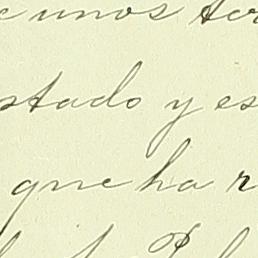 unos
stado y es
que ha r